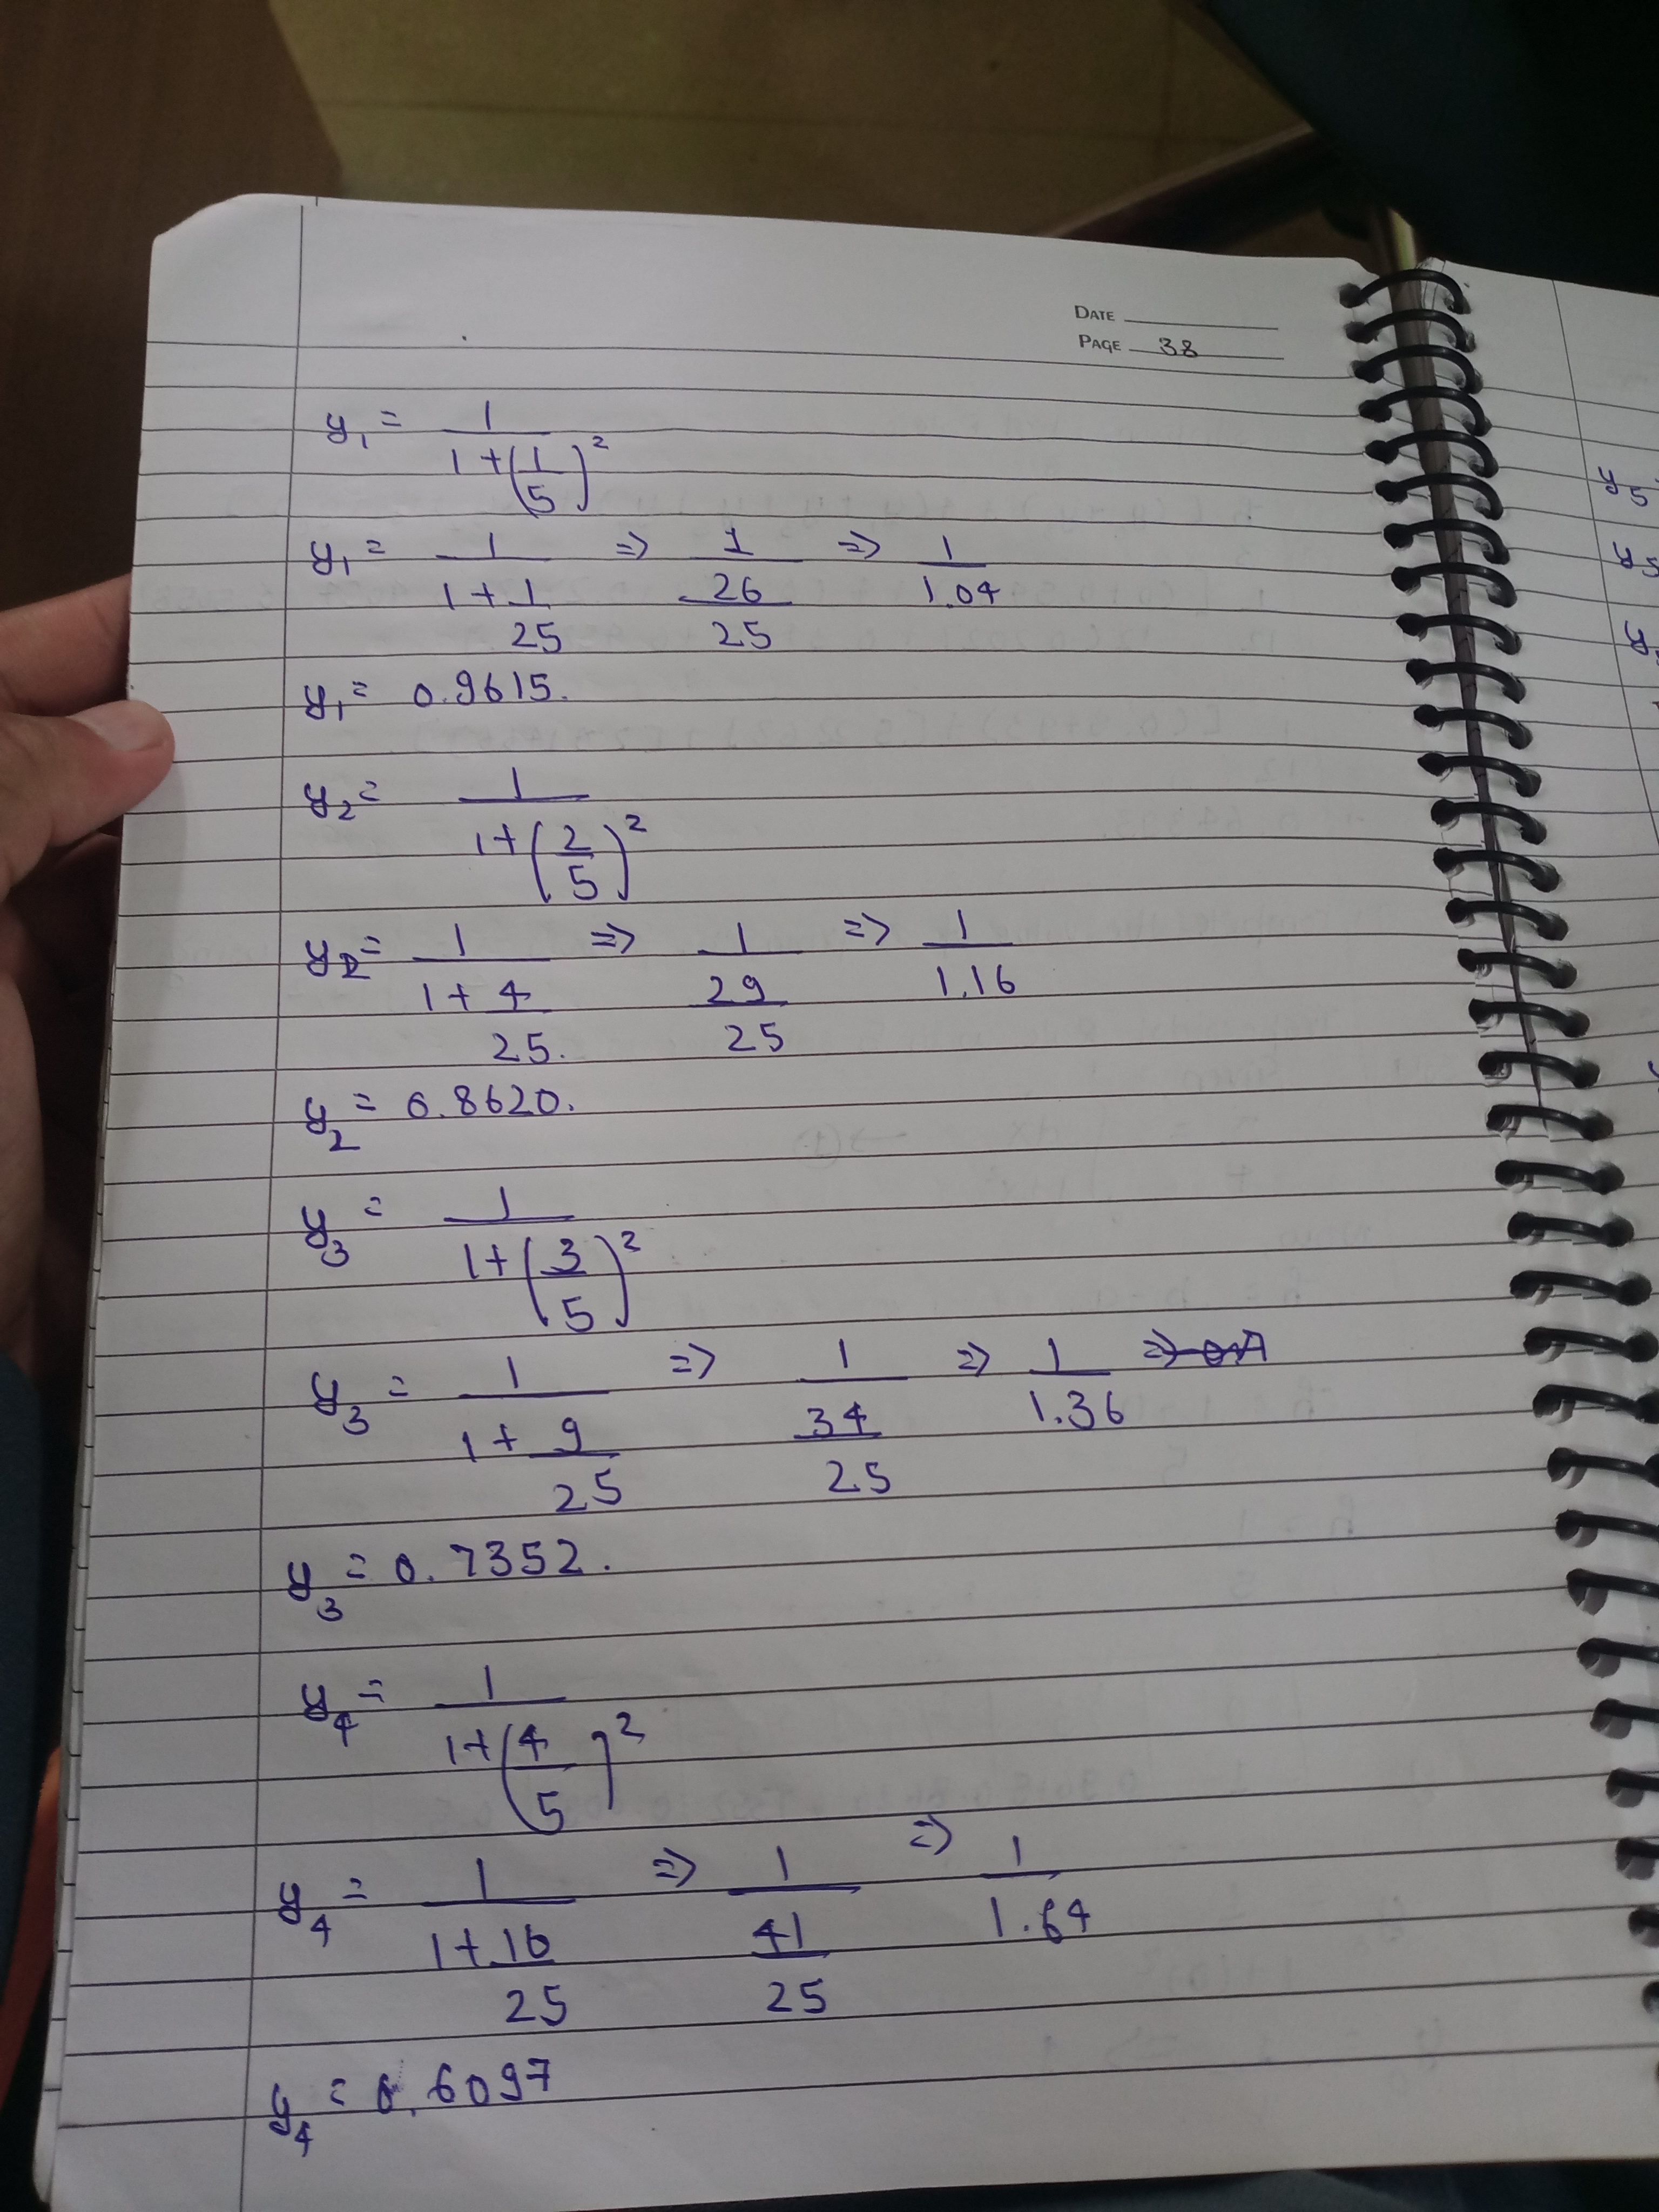 DATE
PAGE 38
y₁ = 1 / 1 + (1/5)²
y₁ = 1 / 1 + 1/25 => 1 / 26/25 => 1 / 1.04
y₁ = 0.9615.
y₂ = 1 / 1 + (2/5)²
y₂ = 1 / 1 + 4/25. => 1 / 29/25 => 1 / 1.16
y₂ = 0.8620.
y₃ = 1 / 1 + (3/5)²
y₃ = 1 / 1 + 9/25 => 1 / 34/25 => 1 / 1.36
y₃ = 0.7352.
y₄ = 1 / 1 + (4/5)²
y₄ = 1 / 1 + 16/25 => 1 / 41/25 => 1 / 1.64
y₄ = 0.6097
y₅
y₅